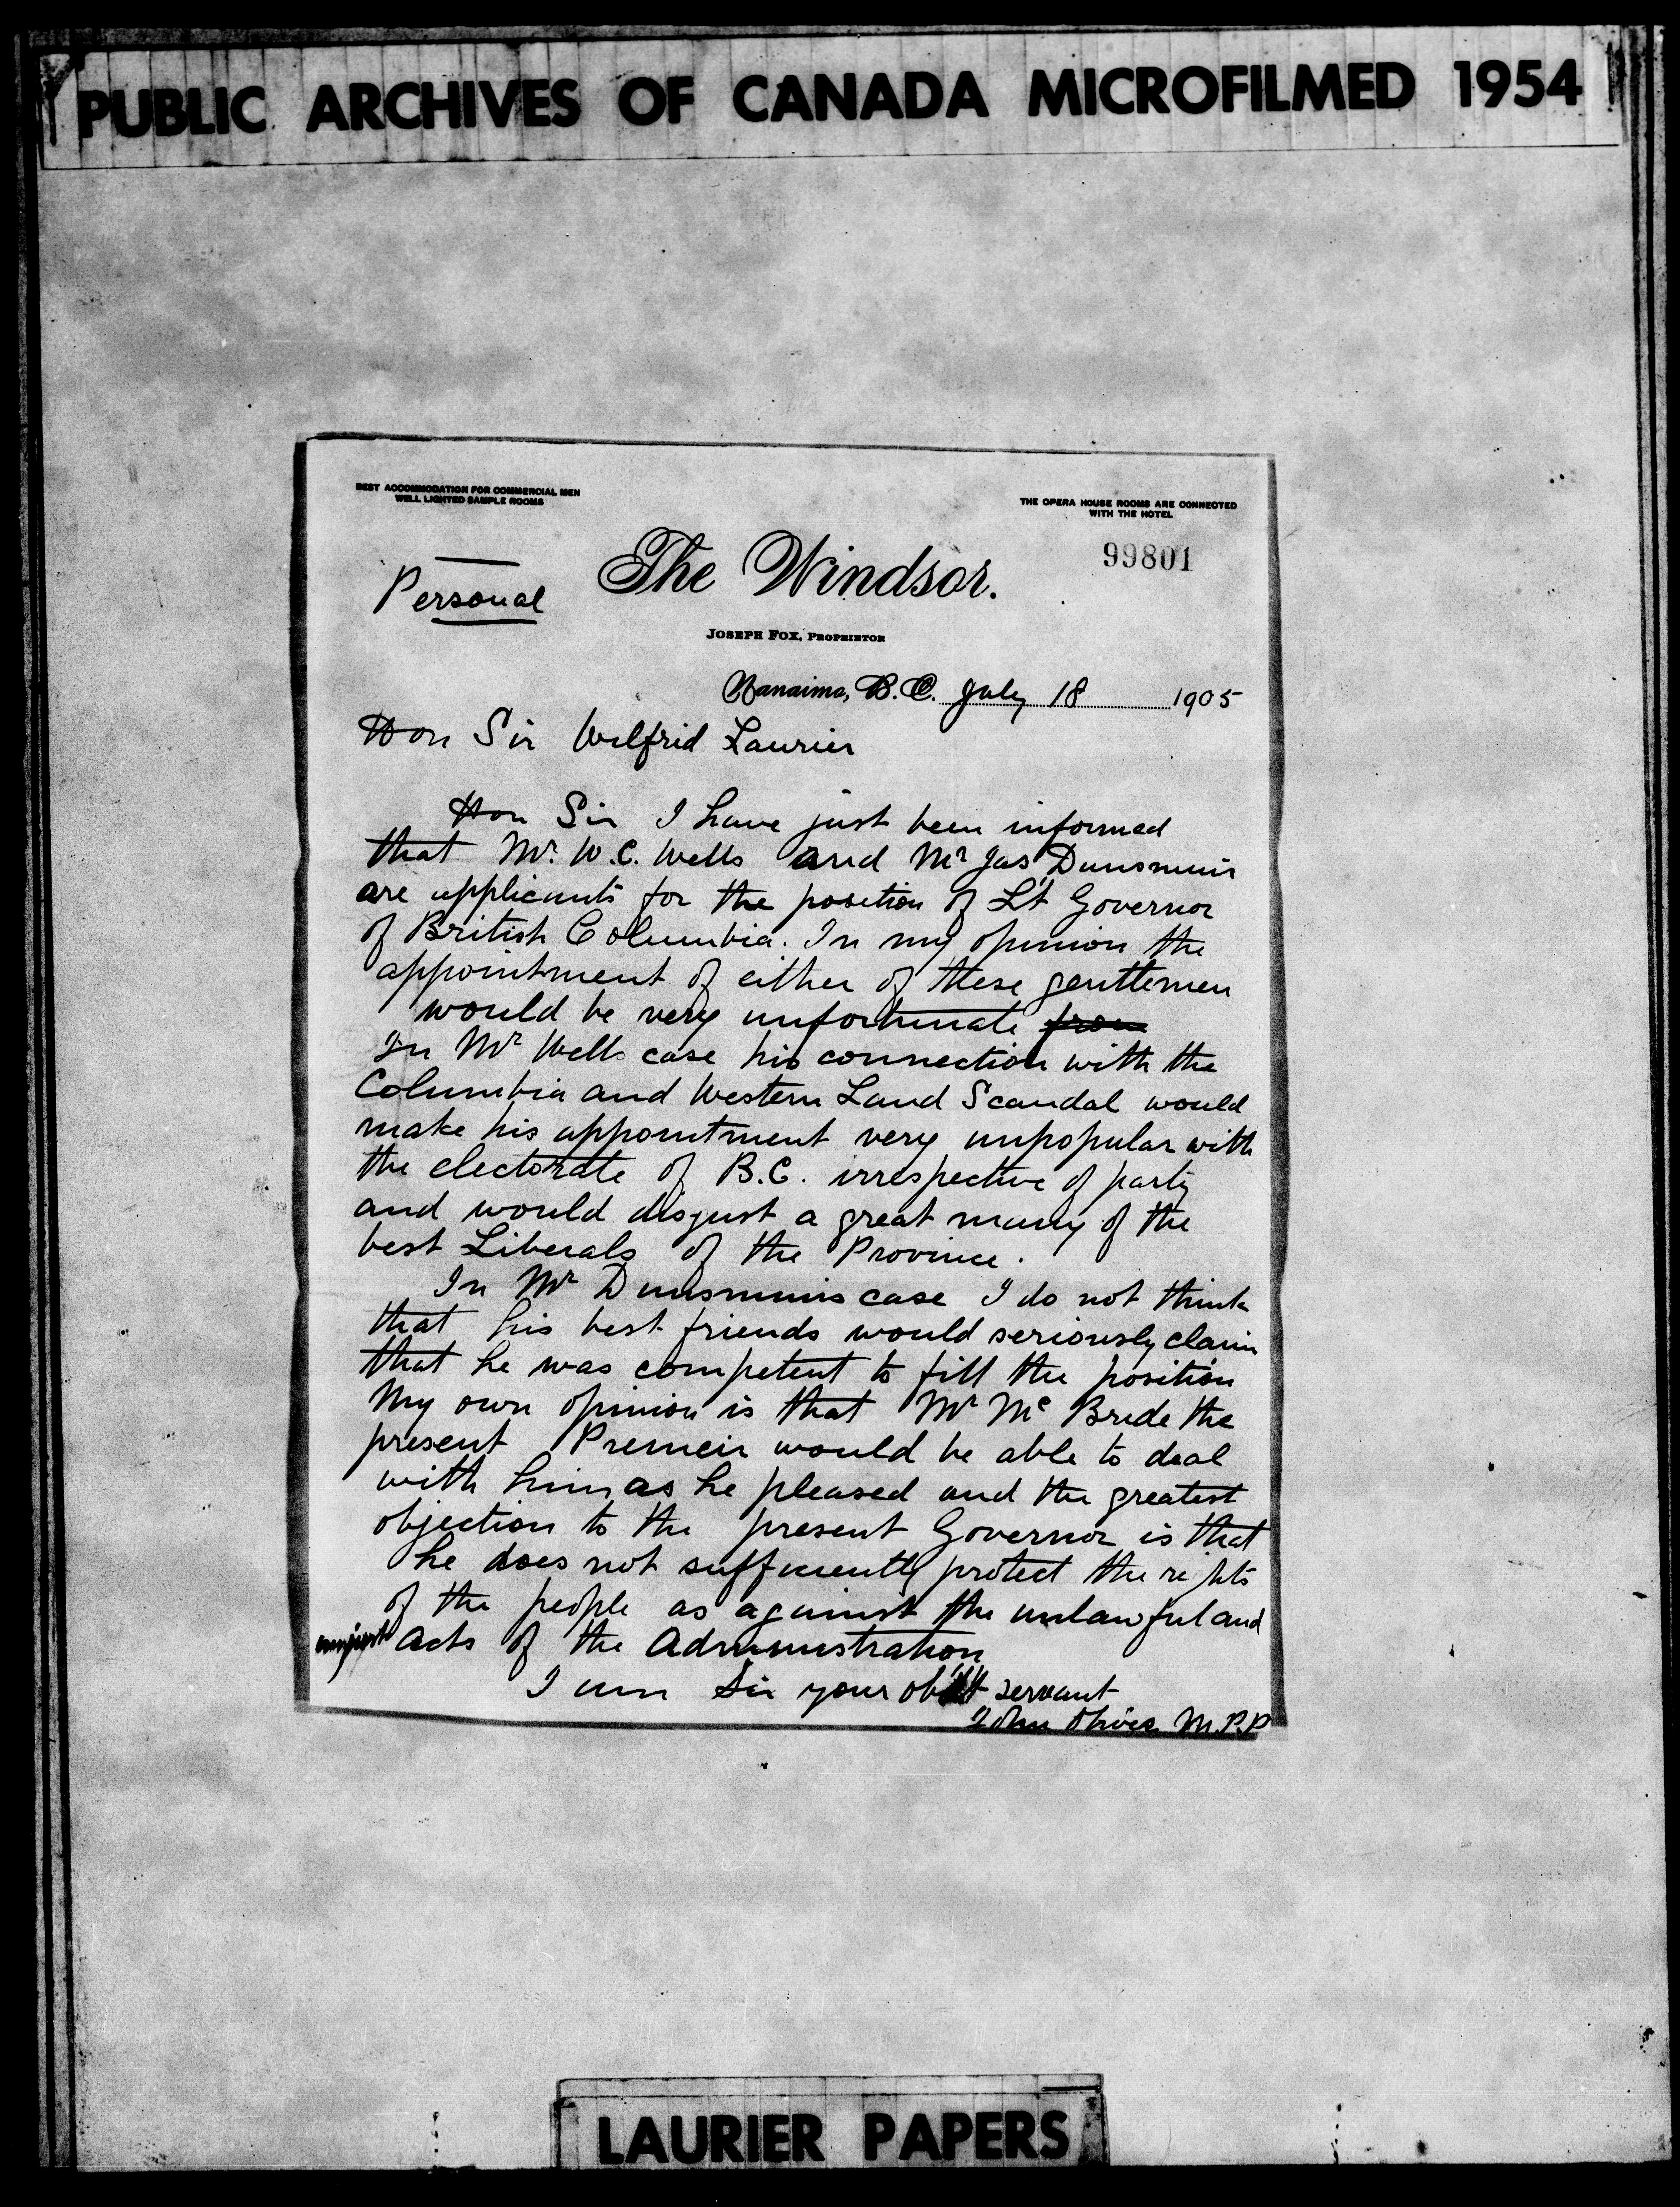 PUBLIC ARCHIVES OF CANADA MICROFILMED 1954
BEST ACCOMMODATION FOR COMMERCIAL MEN
WELL LIGHTED SAMPLE ROOMS
THE OPERA HOUSE ROOMS ARE CONNECTED
WITH THE HOTEL
99801
Personal
The Windsor.
JOSEPH FOX, PROPRIETOR
Nanaimo, B.C. July 18 1905
Hon Sir Wilfrid Laurier
Hon Sir I have just been informed
that Mr. W.C. Wells and Mr Jas Dunsmuir
are applicants for the position of Lt Governor
of British Columbia. In my opinion the
appointment of either of these gentlemen
would be very unfortunate from
In Mr Wells case his connection with the
Columbia and Western Land Scandal would
make his appointment very unpopular with
the electorate of B.C. irrespective of party
and would disgust a great many of the
best Liberals of the Province.
In Mr Dunsmuirs case I do not think
that his best friends would seriously claim
that he was competent to fill the position
My own opinion is that Mr Mc Bride the
present Premeir would be able to deal
with him as he pleased and the greatest
objection to the present Governor is that
he does not sufficiently protect the rights
of the people as against the unlawful and
unjust acts of the Administration
I am Sir your obt servant
John Oliver M.P.P
LAURIER PAPERS